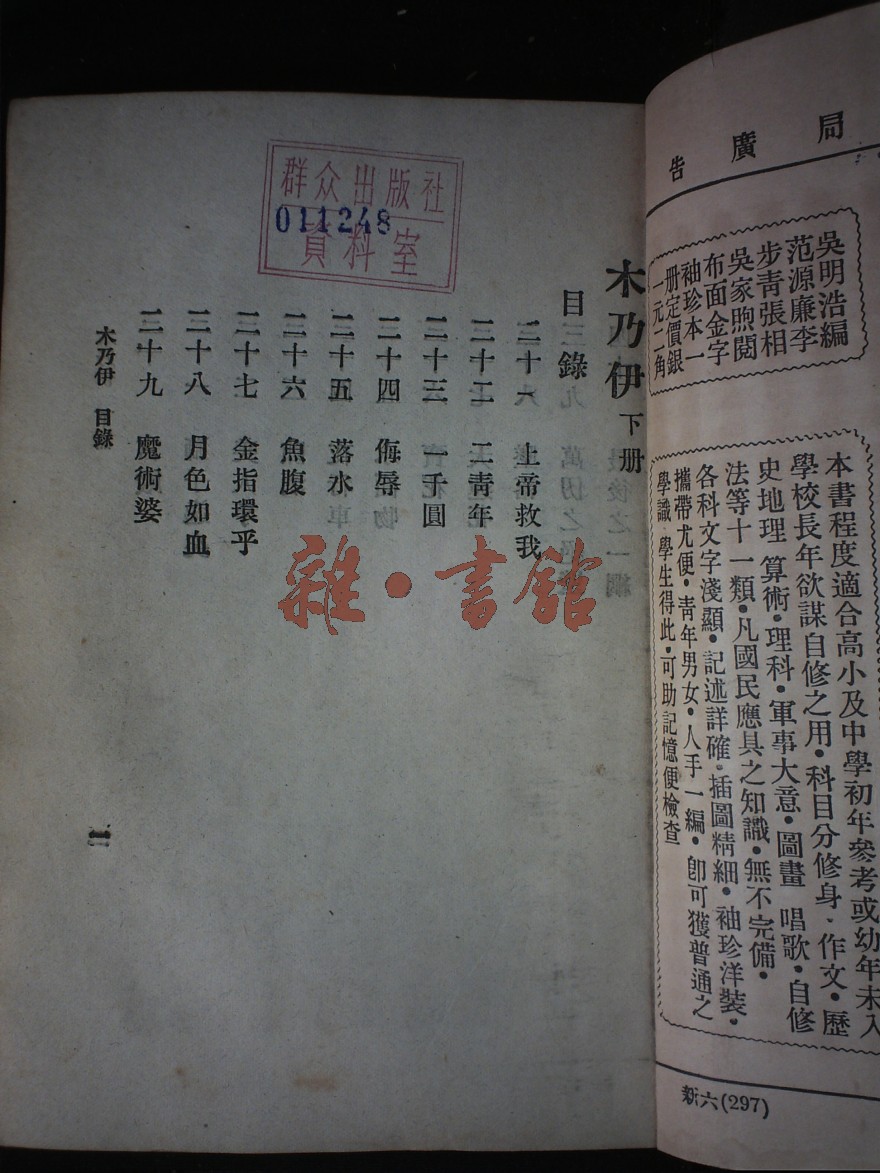 局廣告
吳明浩編
范源廉李
步青張相
吳家煦閱
布面金字
袖珍本一
册定價銀
一元二角
本書程度適合高小及中學初年參考或幼年未入
學校長年欲謀自修之用•科目分修身•作文•歷
史地理 算術•理科•軍事大意•圖畫 唱歌•自修
法等十一類•凡國民應具之知識•無不完備•
各科文字淺顯•記述詳確•插圖精細•袖珍洋裝•
攜帶尤便•青年男女•人手一編•卽可獲普通之
學識 學生得此•可助記憶便檢查
新六(297)
群众出版社
011248
資料室
木乃伊 下册
目錄
二十一 上帝救我
二十二 二青年
二十三 一千圓
二十四 侮辱
二十五 落水
二十六 魚腹
二十七 金指環乎
二十八 月色如血
二十九 魔術婆
木乃伊 目錄
雜•書館